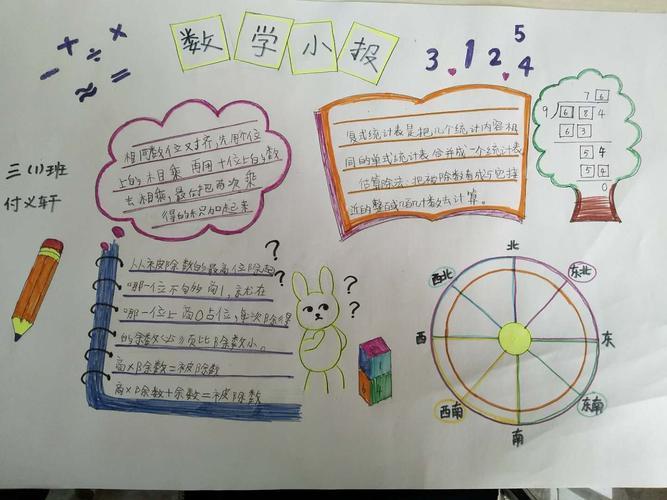 + ÷ × - ≈ =
数学小报
3.1 2.4 5
三(1)班
付义轩
相同数位对齐,先用个位
上的数相乘 再用十位上的数
去相乘,最后把两次乘
得的积加起来
复式统计表是把几个统计内容相
同的单式统计表合并成一个统计表
估算除法:把被除数看成与它接
近的整百
数去计算。
7 6
9 6 8 4
6 3
5 4
5 4
0
从被除数的最高位除起
哪一位不够商1,就在
哪一位上商0占位,每次除得
的余数必须比除数小。
商×除数=被除数
商×除数+余数=被除数
? ? ? ?
北
西北 东北
西 东
西南 东南
南